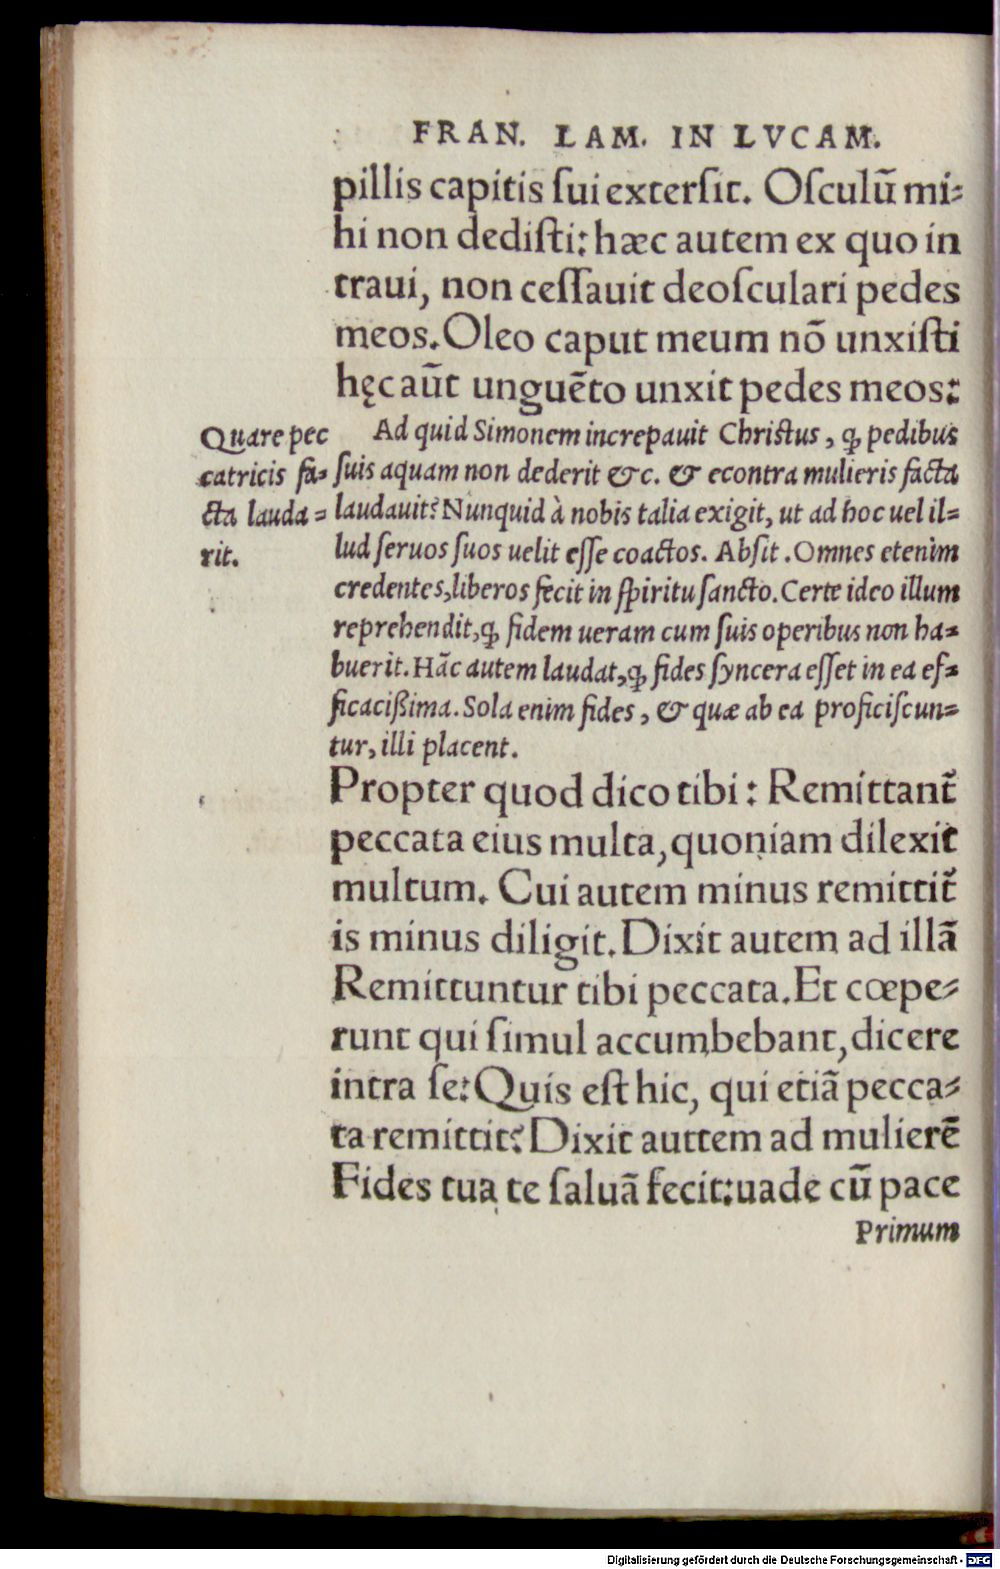 FRAN. LAM. IN LVCAM.
pillis capitis ſui exterſit. Oſculũ mi⸗
hi non dediſti: hæc autem ex quo in
traui, non ceſſauit deoſculari pedes
meos. Oleo caput meum nõ unxiſti
hęc aũt unguẽto unxit pedes meos:
Quare pec
catricis fa⸗
cta lauda⸗
rit.
Ad quid Simonem increpauit Chriſtus, ꝙ pedibus
ſuis aquam non dederit &c. & econtra mulieris facta
laudauit? Nunquid à nobis talia exigit, ut ad hoc uel il⸗
lud ſeruos ſuos uelit eſſe coactos. Abſit. Omnes etenim
credentes, liberos fecit in ſpiritu ſancto. Certe ideo illum
reprehendit, ꝙ fidem ueram cum ſuis operibus non ha⸗
buerit. Hãc autem laudat, ꝙ fides ſyncera eſſet in ea ef⸗
ficacißima. Sola enim fides, & quæ ab ea proficiſcun⸗
tur, illi placent.
Propter quod dico tibi: Remittant᷉
peccata eius multa, quoniam dilexit
multum. Cui autem minus remittit᷉
is minus diligit. Dixit autem ad illã
Remittuntur tibi peccata. Et cœpe⸗
runt qui ſimul accumbebant, dicere
intra ſe: Quis eſt hic, qui etiã pecca⸗
ta remittit? Dixit auttem ad mulierẽ
Fides tua te ſaluã fecit: uade cũ pace
Primum
Digitalisierung gefördert durch die Deutsche Forschungsgemeinschaft - DFG